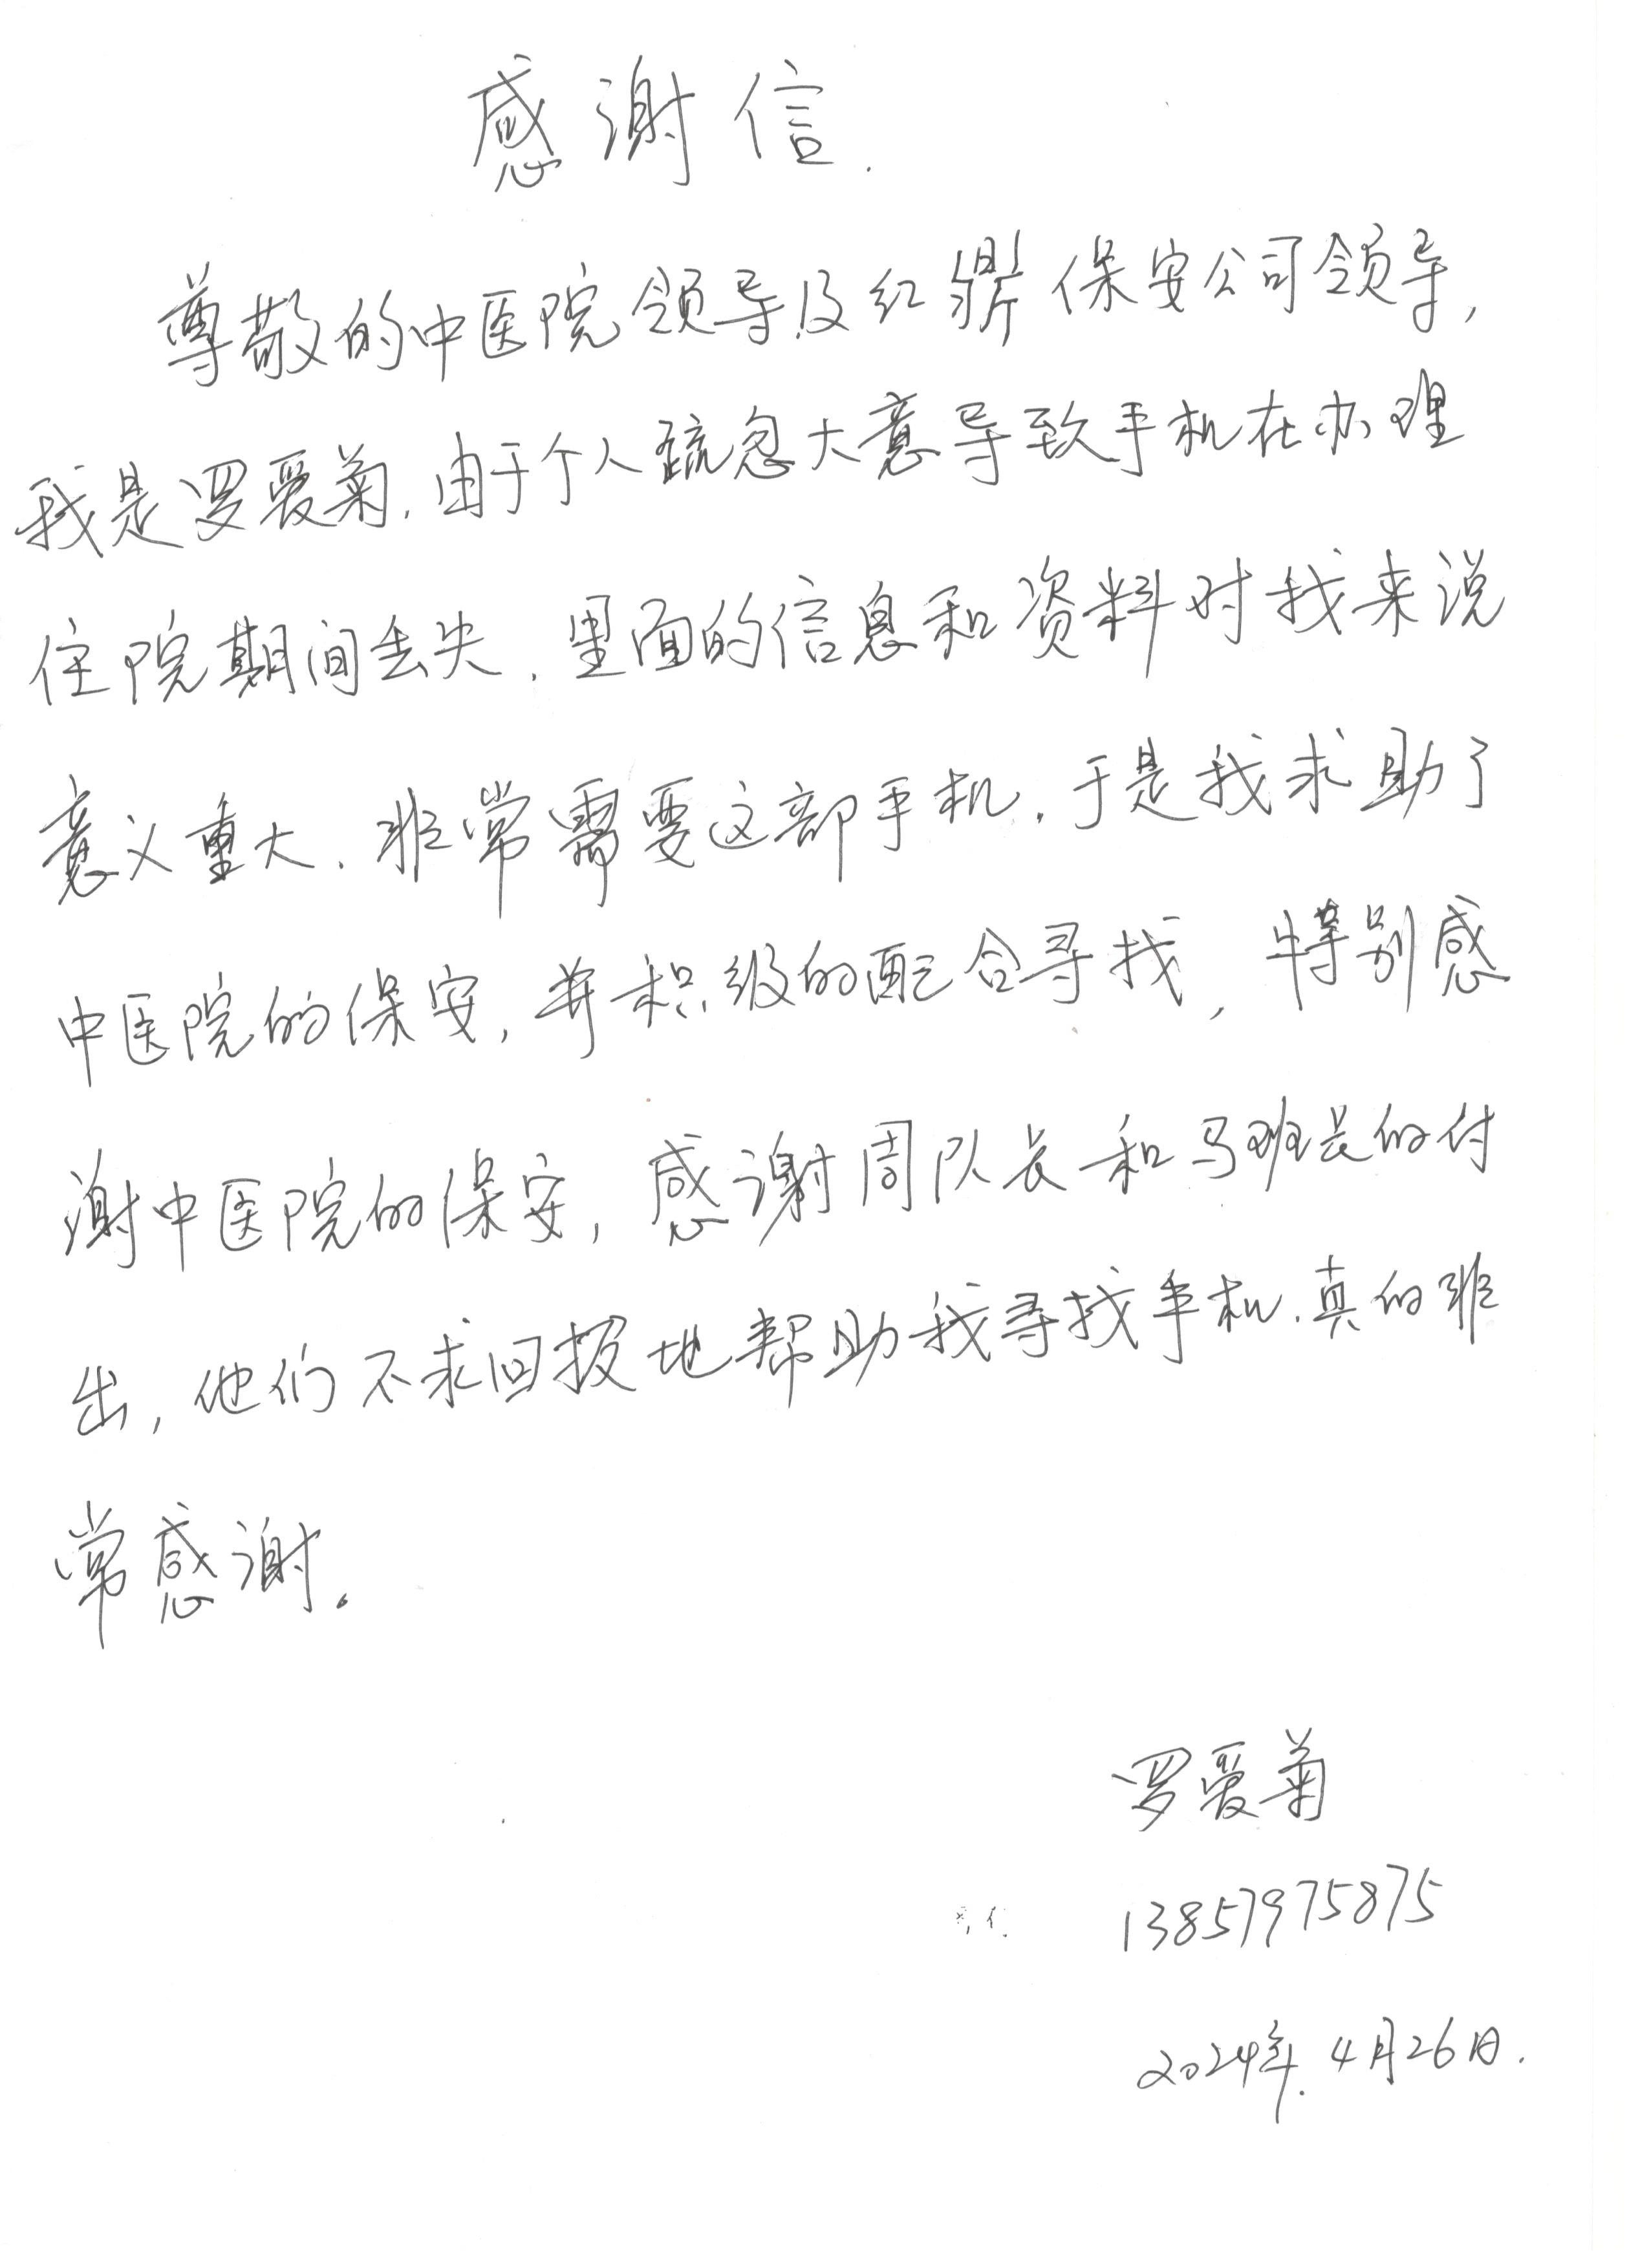 感谢信.
尊敬的中医院领导及红鼎保安公司领导,
我是罗爱菊.由于个人疏忽大意导致手机在办理
住院期间丢失.里面的信息和资料对我来说
意义重大.非常需要这部手机.于是我求助了
中医院的保安,并积级的配合寻找,特别感
谢中医院的保安,感谢周队长和马班长的付
出,他们不求回报地帮助我寻找手机.真的非
常感谢。
罗爱菊
13857975875
2024年.4月26日.